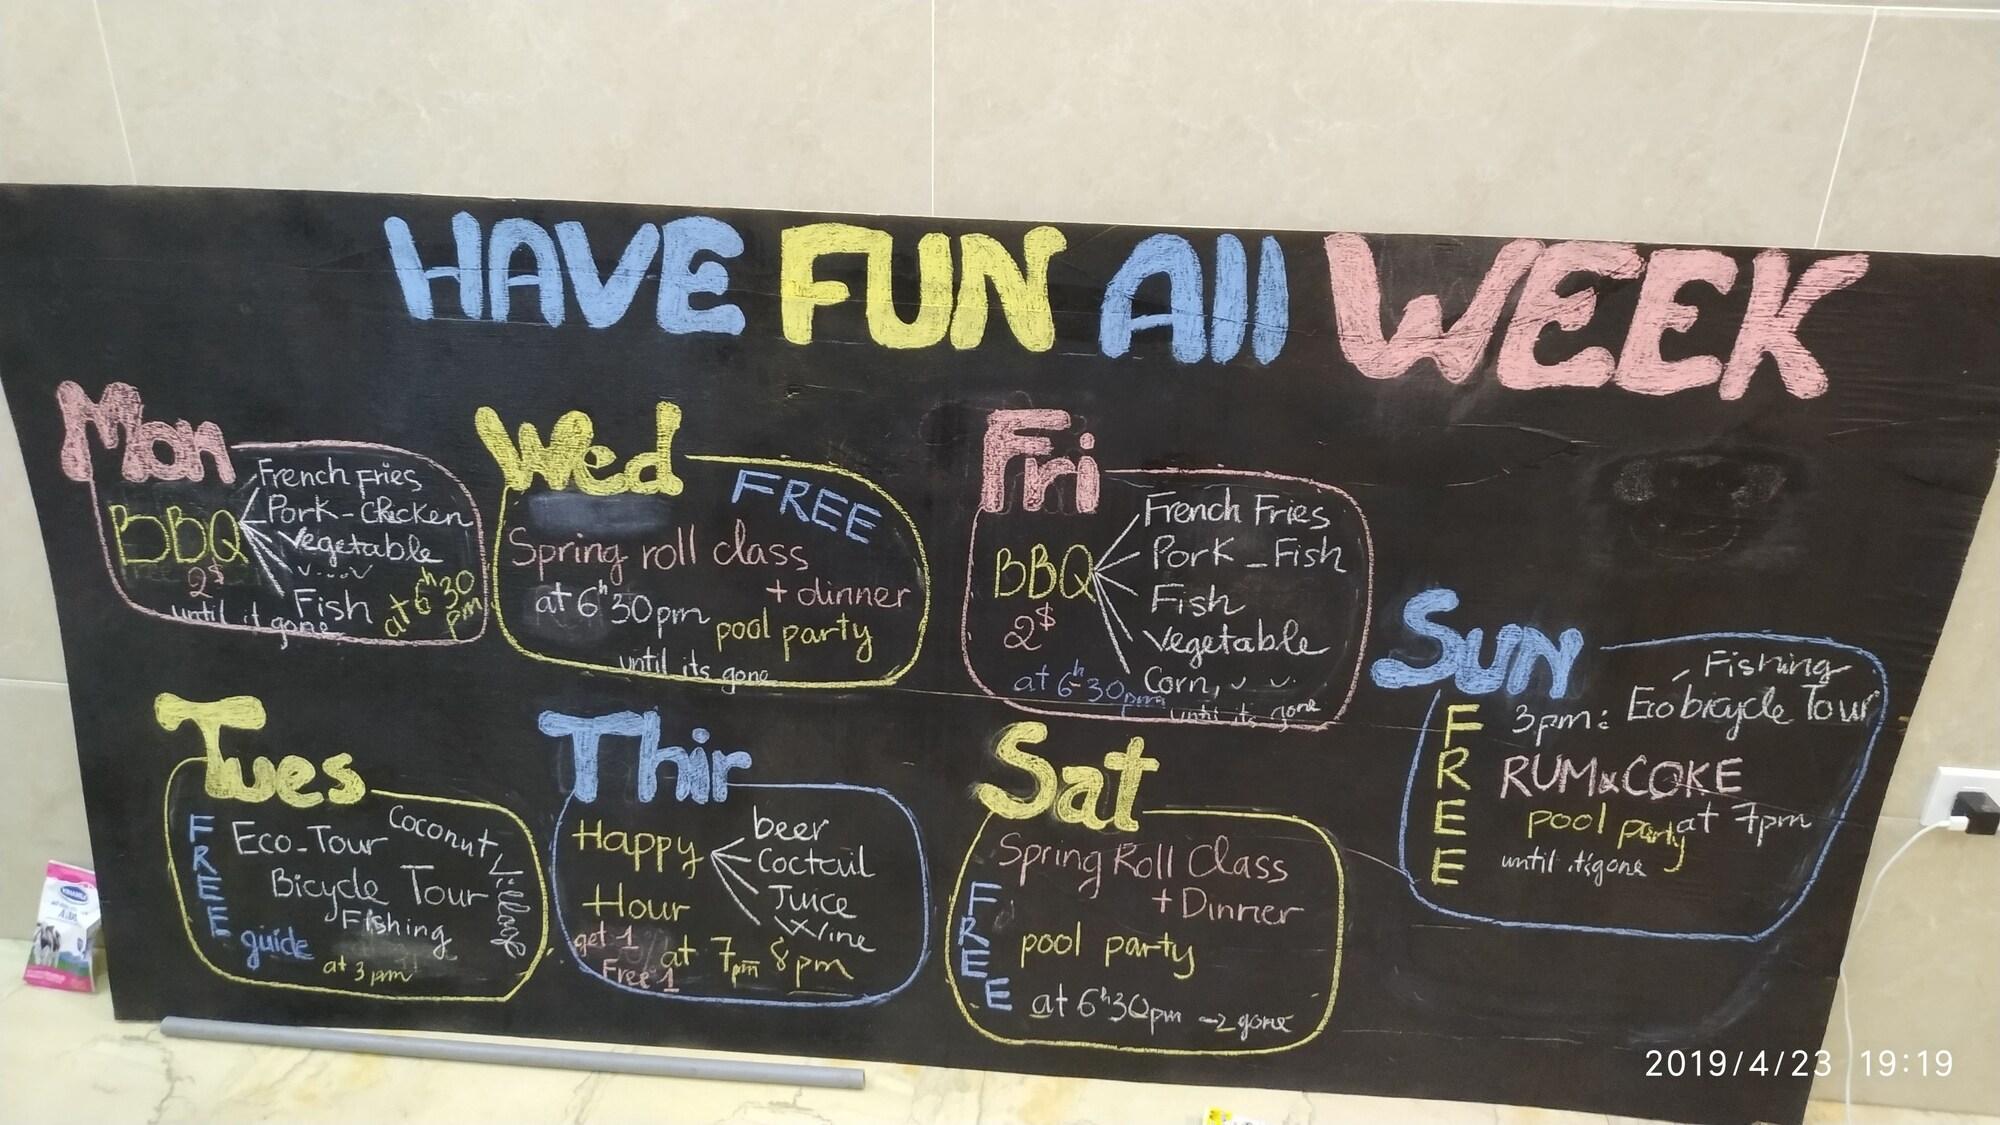 HAVE FUN All WEEK
Mon
BBQ
2$
until it gone
French Fries
Pork - Chicken
Vegetable
Fish
at 6h30
pm
Wed
FREE
Spring roll class
+ dinner
at 6h30pm
pool party
until its gone
Fri
BBQ
2$
at 6h30pm
French Fries
Pork - Fish
Fish
Vegetable
Corn,
until its gone
Sun
FREE
Fishing
3pm: Eco bicycle Tour
RUM & COKE
pool party at 7pm
until it's gone
Tues
FREE
guide
Eco-Tour
Coconut Village
Bicycle Tour
Fishing
at 3 pm
Thir
Happy
Hour
beer
Coctail
Juice
Wine
get 1
Free 1
at 7pm 8pm
Sat
FREE
Spring Roll Class
+ Dinner
pool party
at 6h30pm → gone
2019/4/23 19:19